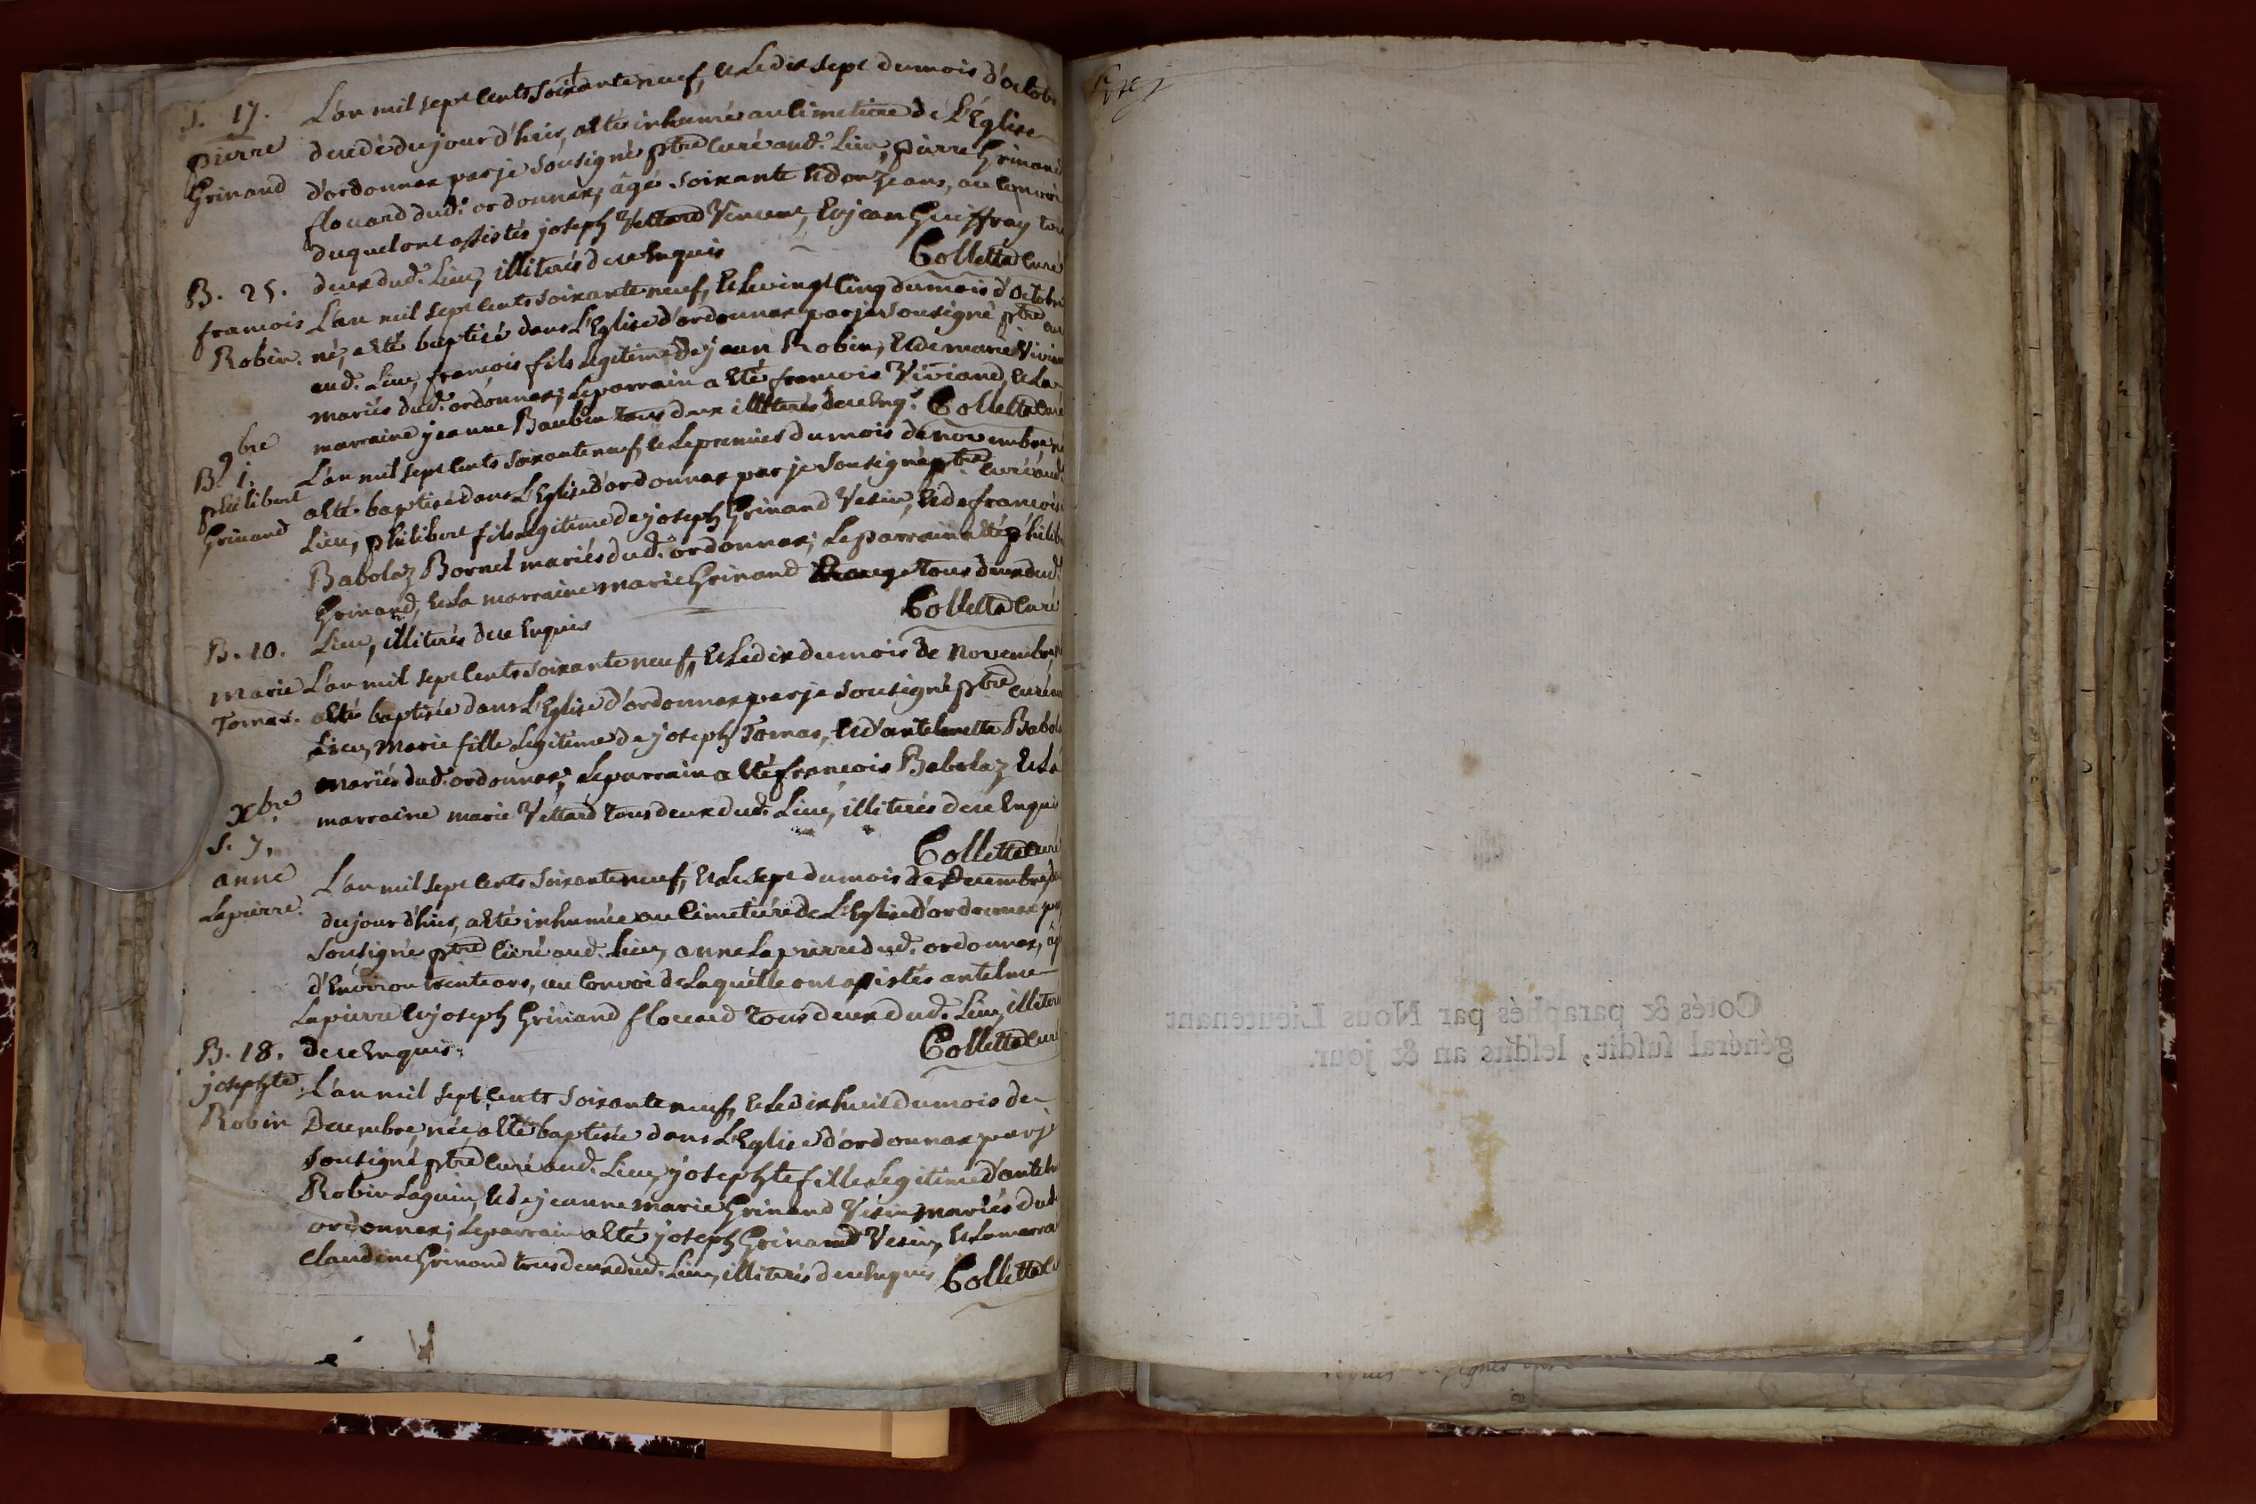 S. 17.
pierre
Grinand
L'an mil sept cents soixante neuf, et le dix sept du mois d'octobr
decedé du jour d'hier, a été inhumé au cimetiere de L'Eglise
d'ordonnax par je sousigné ptre curé aud. Lieu, pierre Grinand
flouard dud. ordonnax, âgé soixante et donze ans, au convoi
duquel ont assistés joseph Vettard Vincent, et jean Guiffray tou
deux dud. Lieu, illiterés de ce enquis
Colletta curé
B. 25.
francois
Robin.
L'an mil sept cents soixante neuf, et le vingt cinq du mois d'octobr
né, a été baptisé dans L'Eglise d'ordonnax par je sousigné ptre cur
aud. Lieu, francois fils legitime de jean Robin, et de marie Vivian
mariés dud. ordonnax; le parrain a été francois Viviand, et la
marraine jeanne Baubin tous deux illiterés de ce enq. Colletta curé
9bre
B. 1.
philibert
Grinand
L'an mil sept cents soixante neuf, et le premier du mois de novembre né
a été baptisé dans L'Eglise d'ordonnax par je sousigné ptre curé aud.
Lieu, philibert fils legitime de joseph Grinand Vesin, et de francois
Babolaz Bornet mariés dud. ordonnax; Le parrain a été philib
Grinand, et la marraine marie Grinand tous deux dud.
Lieu, illiterés de ce enquis
Colletta curé
B. 10.
marie
Tomas.
L'an mil sept cents soixante neuf, et le dix du mois de Novembre, n
a été baptisée dans L'Eglise d'ordonnax par je sousigné ptre curé au
Lieu, Marie fille legitime de joseph Tomas, et d'antelmette Babol
mariés dud. ordonnax; le parrain a été francois Babolaz et la
marraine marie Vettard tous deux dud. Lieu, illiterés de ce enquis
Colletta curé
xbre
S. 7.
anne
Lapierre.
L'an mil sept cents soixante neuf, et le sept du mois de decembre, de
du jour d'hier, a été inhumée au cimetiére de L'Eglise d'ordonnax pa
sousigné ptre curé aud. Lieu, anne Lapierre dud. ordonnax, âg
d'environ trente ans, au convoi de Laquelle ont assistés antelme
Lapierre et joseph Grinand flouard tous deux dud. Lieu, illiteré
de ce enquis.
Colletta curé
B. 18.
josephte
Robin
L'an mil sept cents soixante neuf, et le dix huit du mois de
Decembre, née, a été baptisée dans L'Eglise d'ordonnax par j
sousigné ptre curé aud. Lieu, josephte fille legitime d'antelm
Robin Laguin, et de jeanne marie Grinand Vesin mariés dud
ordonnax; le parrain a été joseph Grinand Vesin, et la marra
Claudine Grinand tous deux dud. Lieu, illiterés de ce enquis, Colletta cu
Cotés & paraphés par Nous Lieutenant
général susdit, lesdits an & jour.